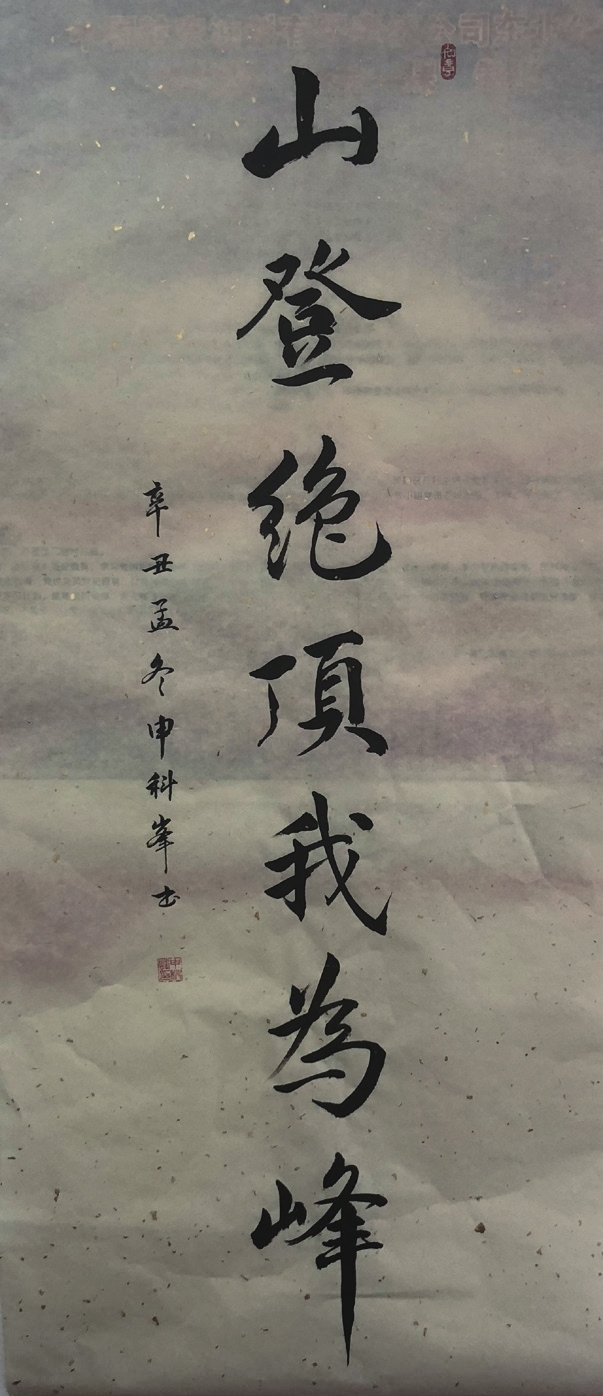 山登絶頂我為峰
辛丑孟冬申科峯书